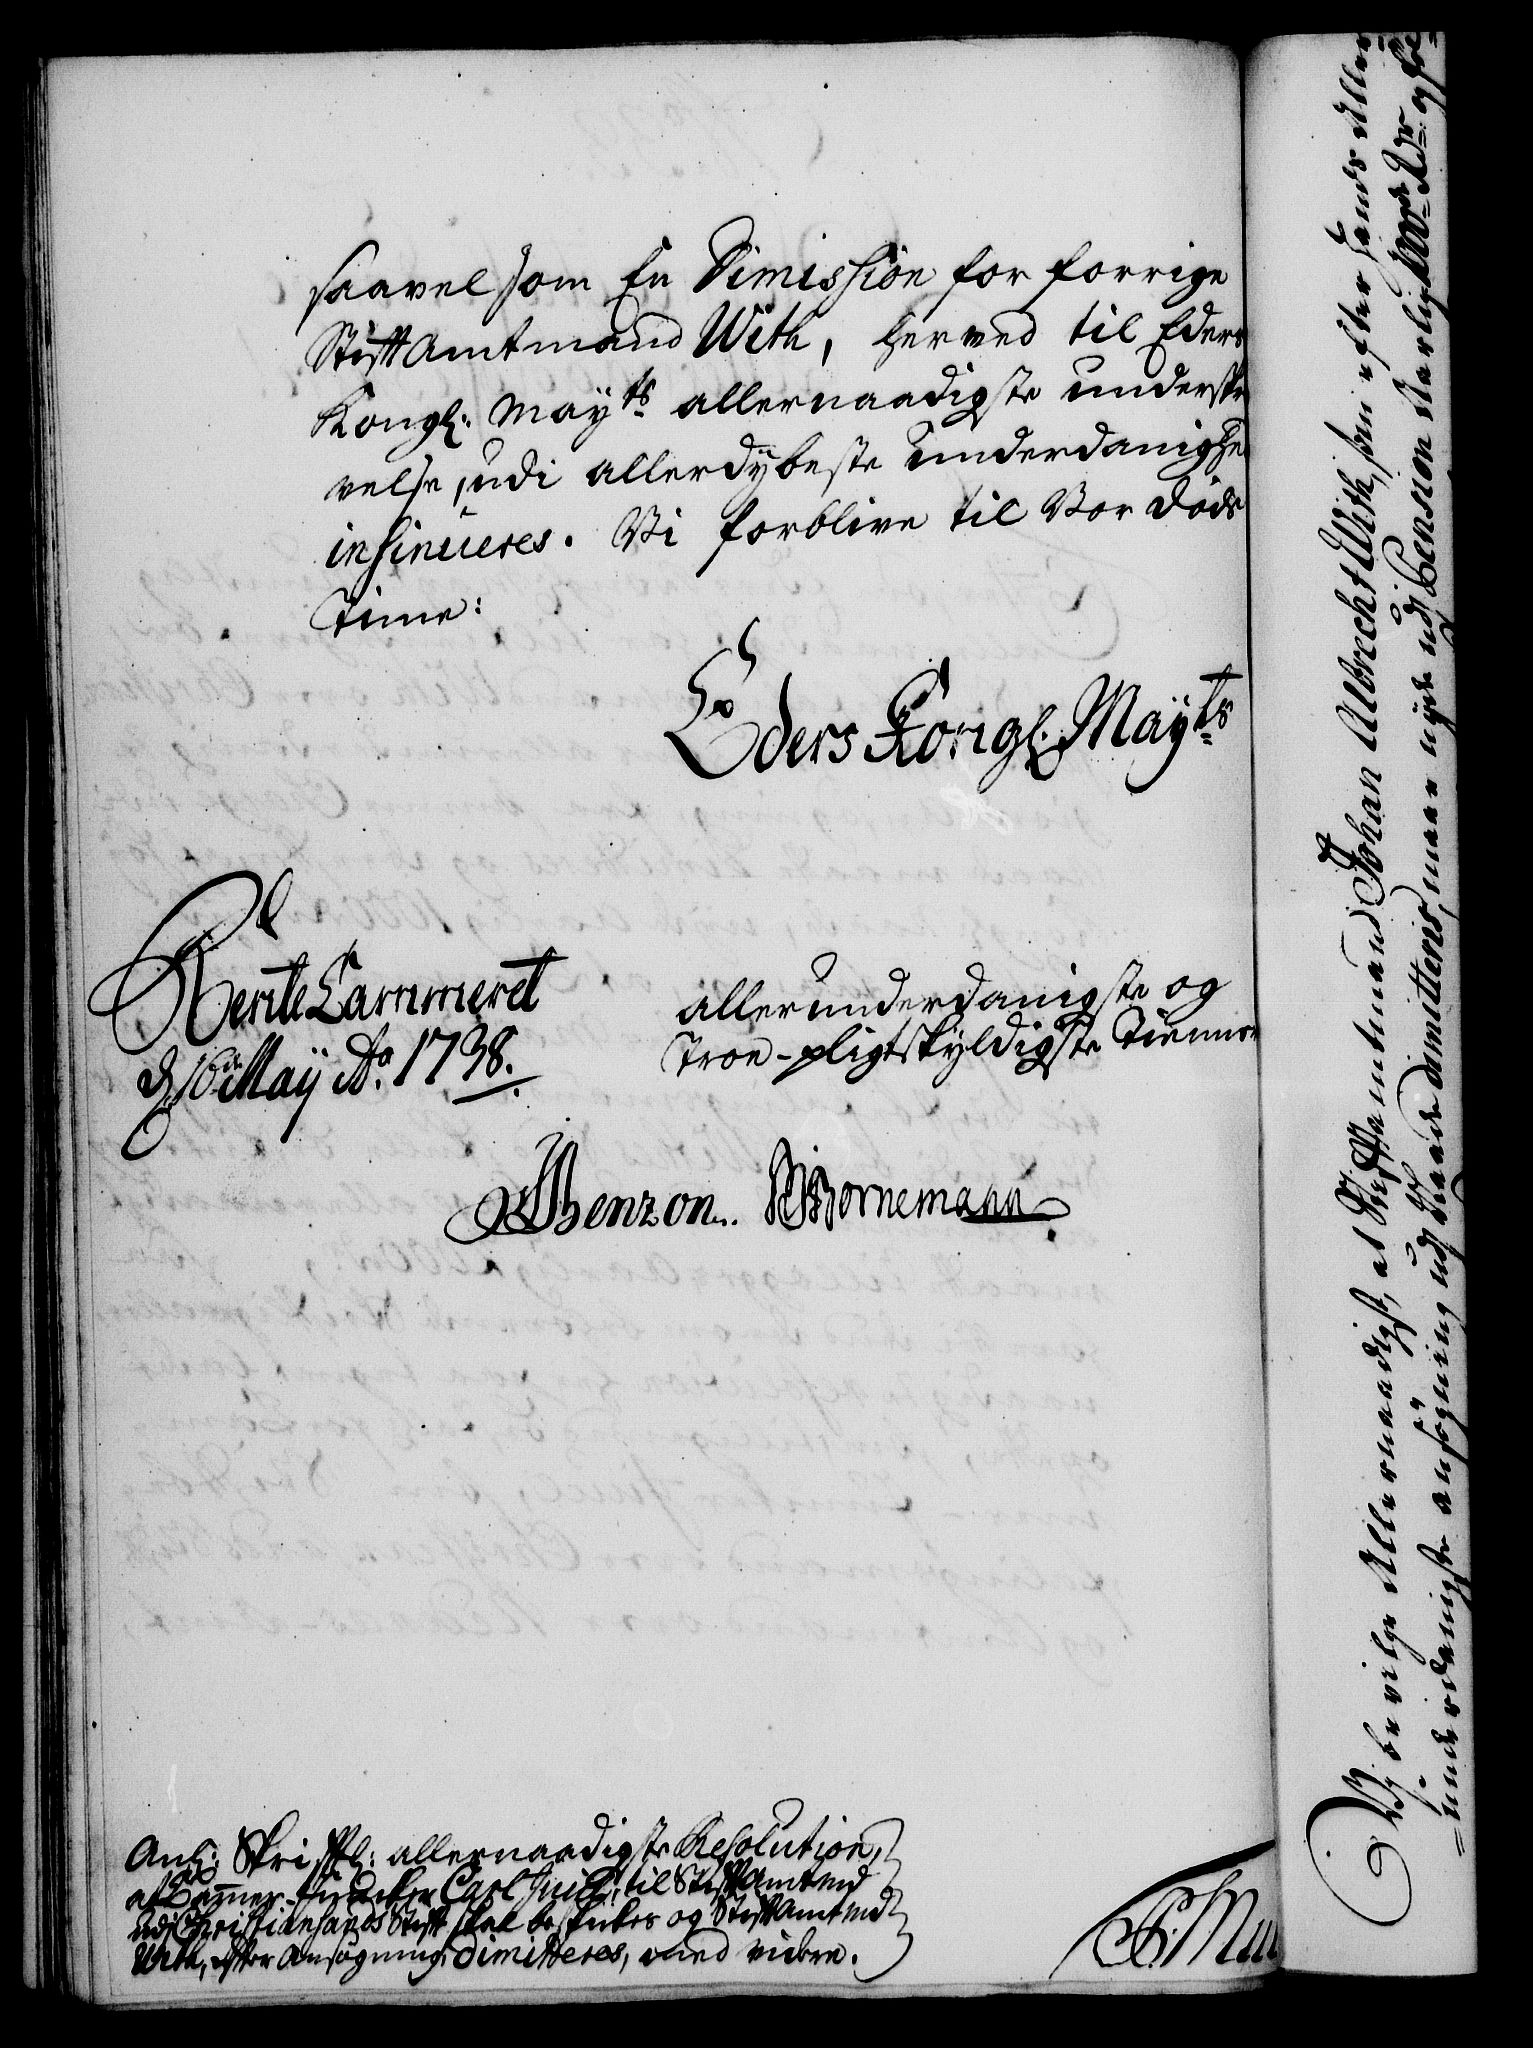 saavel som En Dimission for forrige
Stiftamtmand With, herved til Eders
Kongl: Mayts allernaadigste underskri
velse, udi allerdybeste Underdanighe
insinueres. Vi forblive til Vor Døds
Time:
Eders Kongl. Mayts
RenteCammeret
d 16de Maij Ao 1738.
allerunderdanigste og
Troe-pligtskyldigste Tienner
Benzon. Bornemann
Anl: Skriftl: allernaadigste Resolution,
at Cammer-Juncker Carl Juel, til Stiftamtmd
udi Christiansands Stift skal beskikkes og Stiftamtmd
With, efter Ansøgning dimitteres, med videre.
Vj bevilge Allernaadigst, at Stiftamtmand Johan Albrecht With, som efter hands Aller
underdanigste ansøgning udj Naade dimitteris, maae nyde udj Pension Aarlig